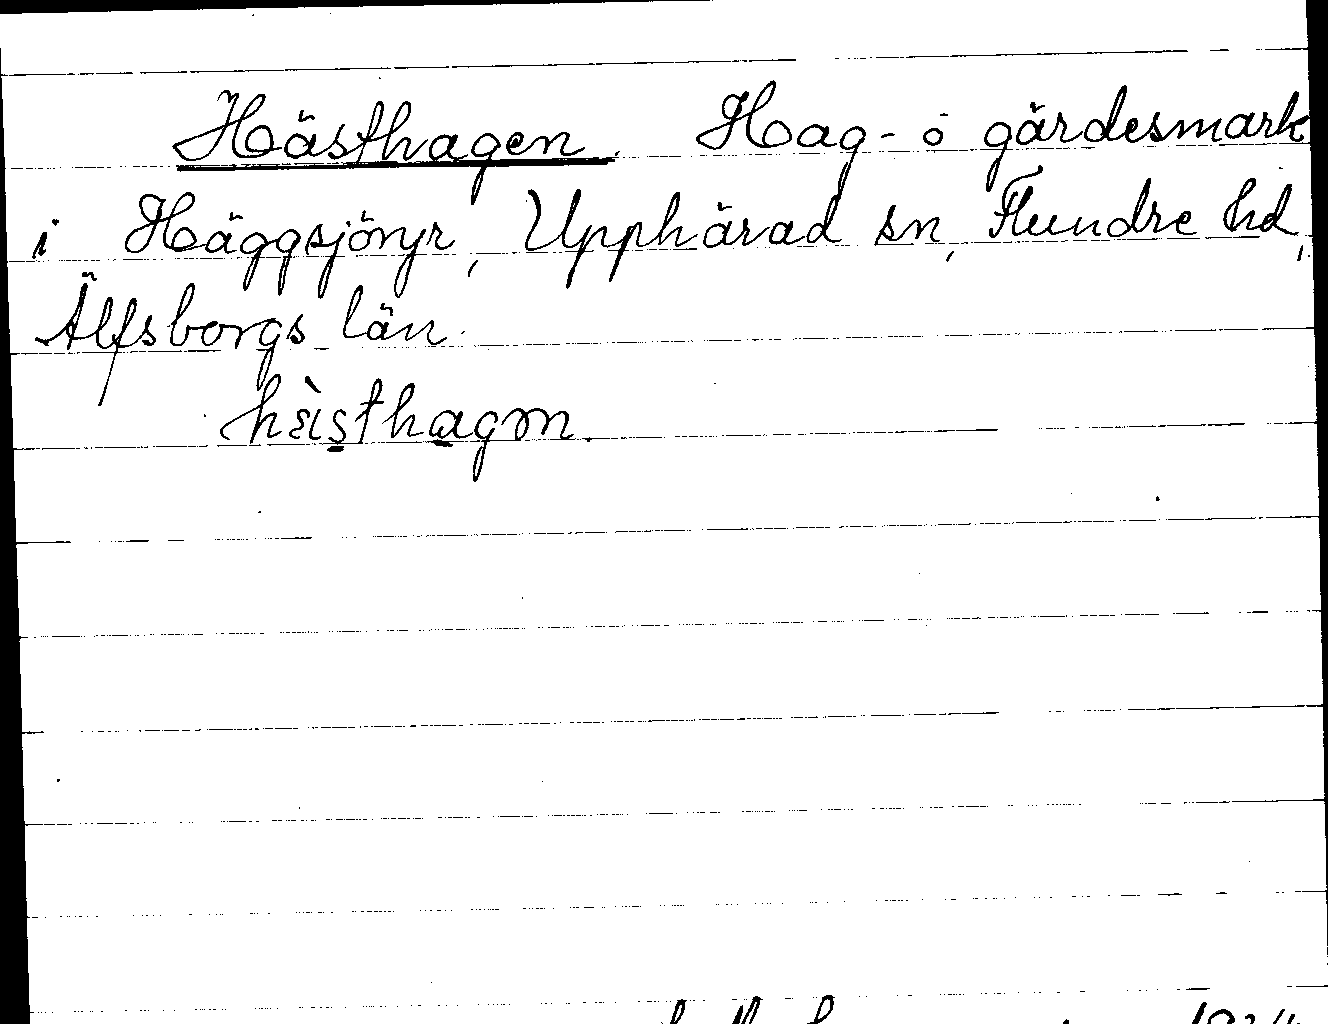 Hästhagen. Hag- o gärdesmark
i Häggsjöryr, Upphärad sn, Flundre hd,
Älfsborgs län.